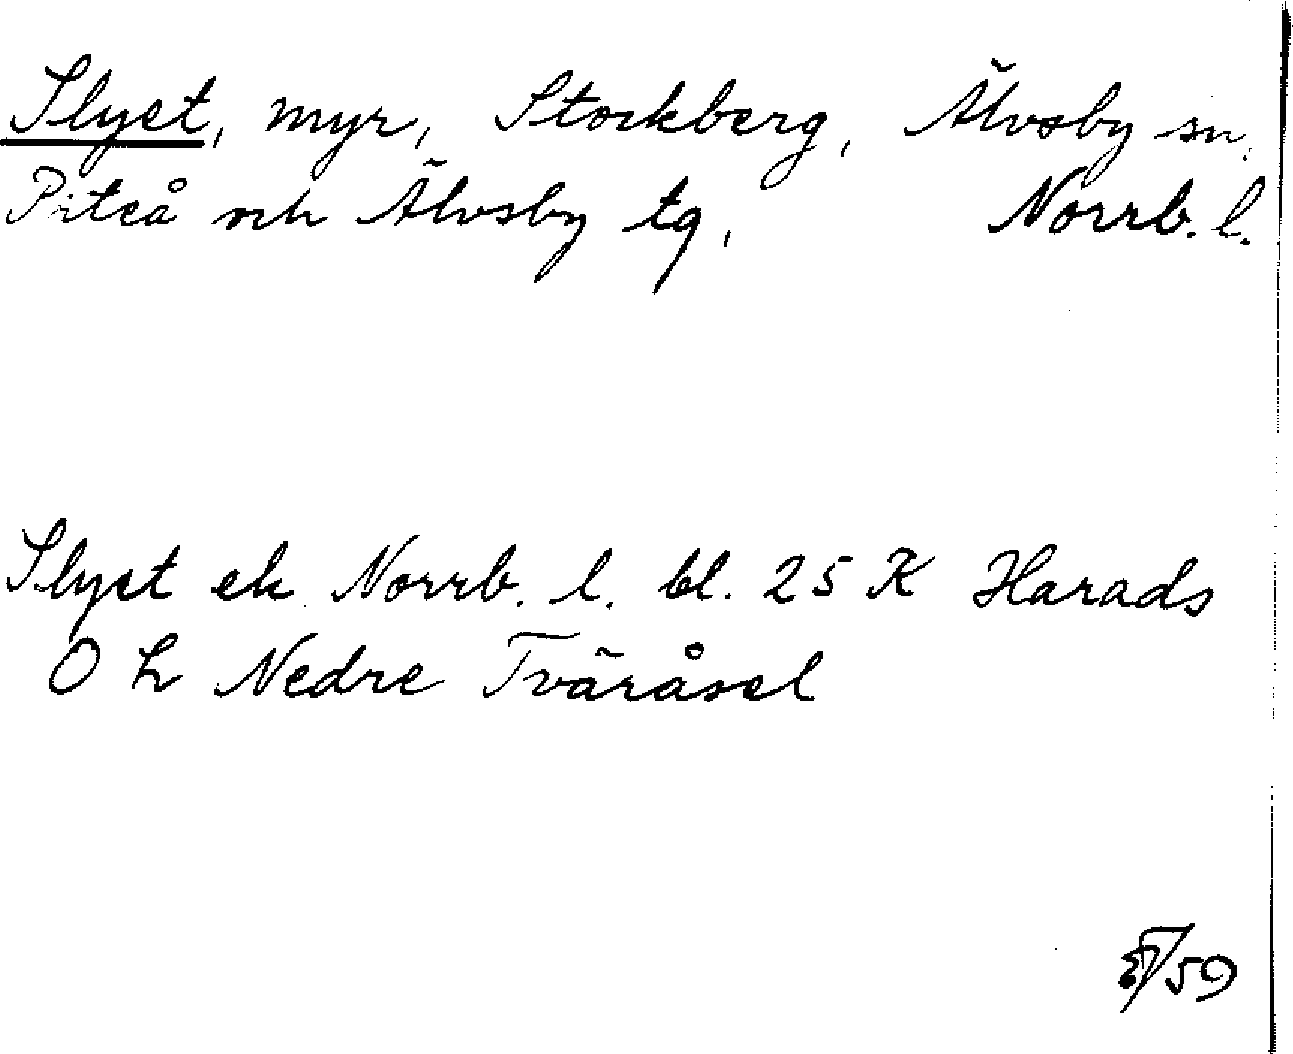 Slyet, myr, Stockberg, Älvsby sn.
Piteå och Älvsby tg,	Norrb. l.
Slyet ek. Norrb. l. bl. 25 K Harads
O h Nedre Tväråsel
/59